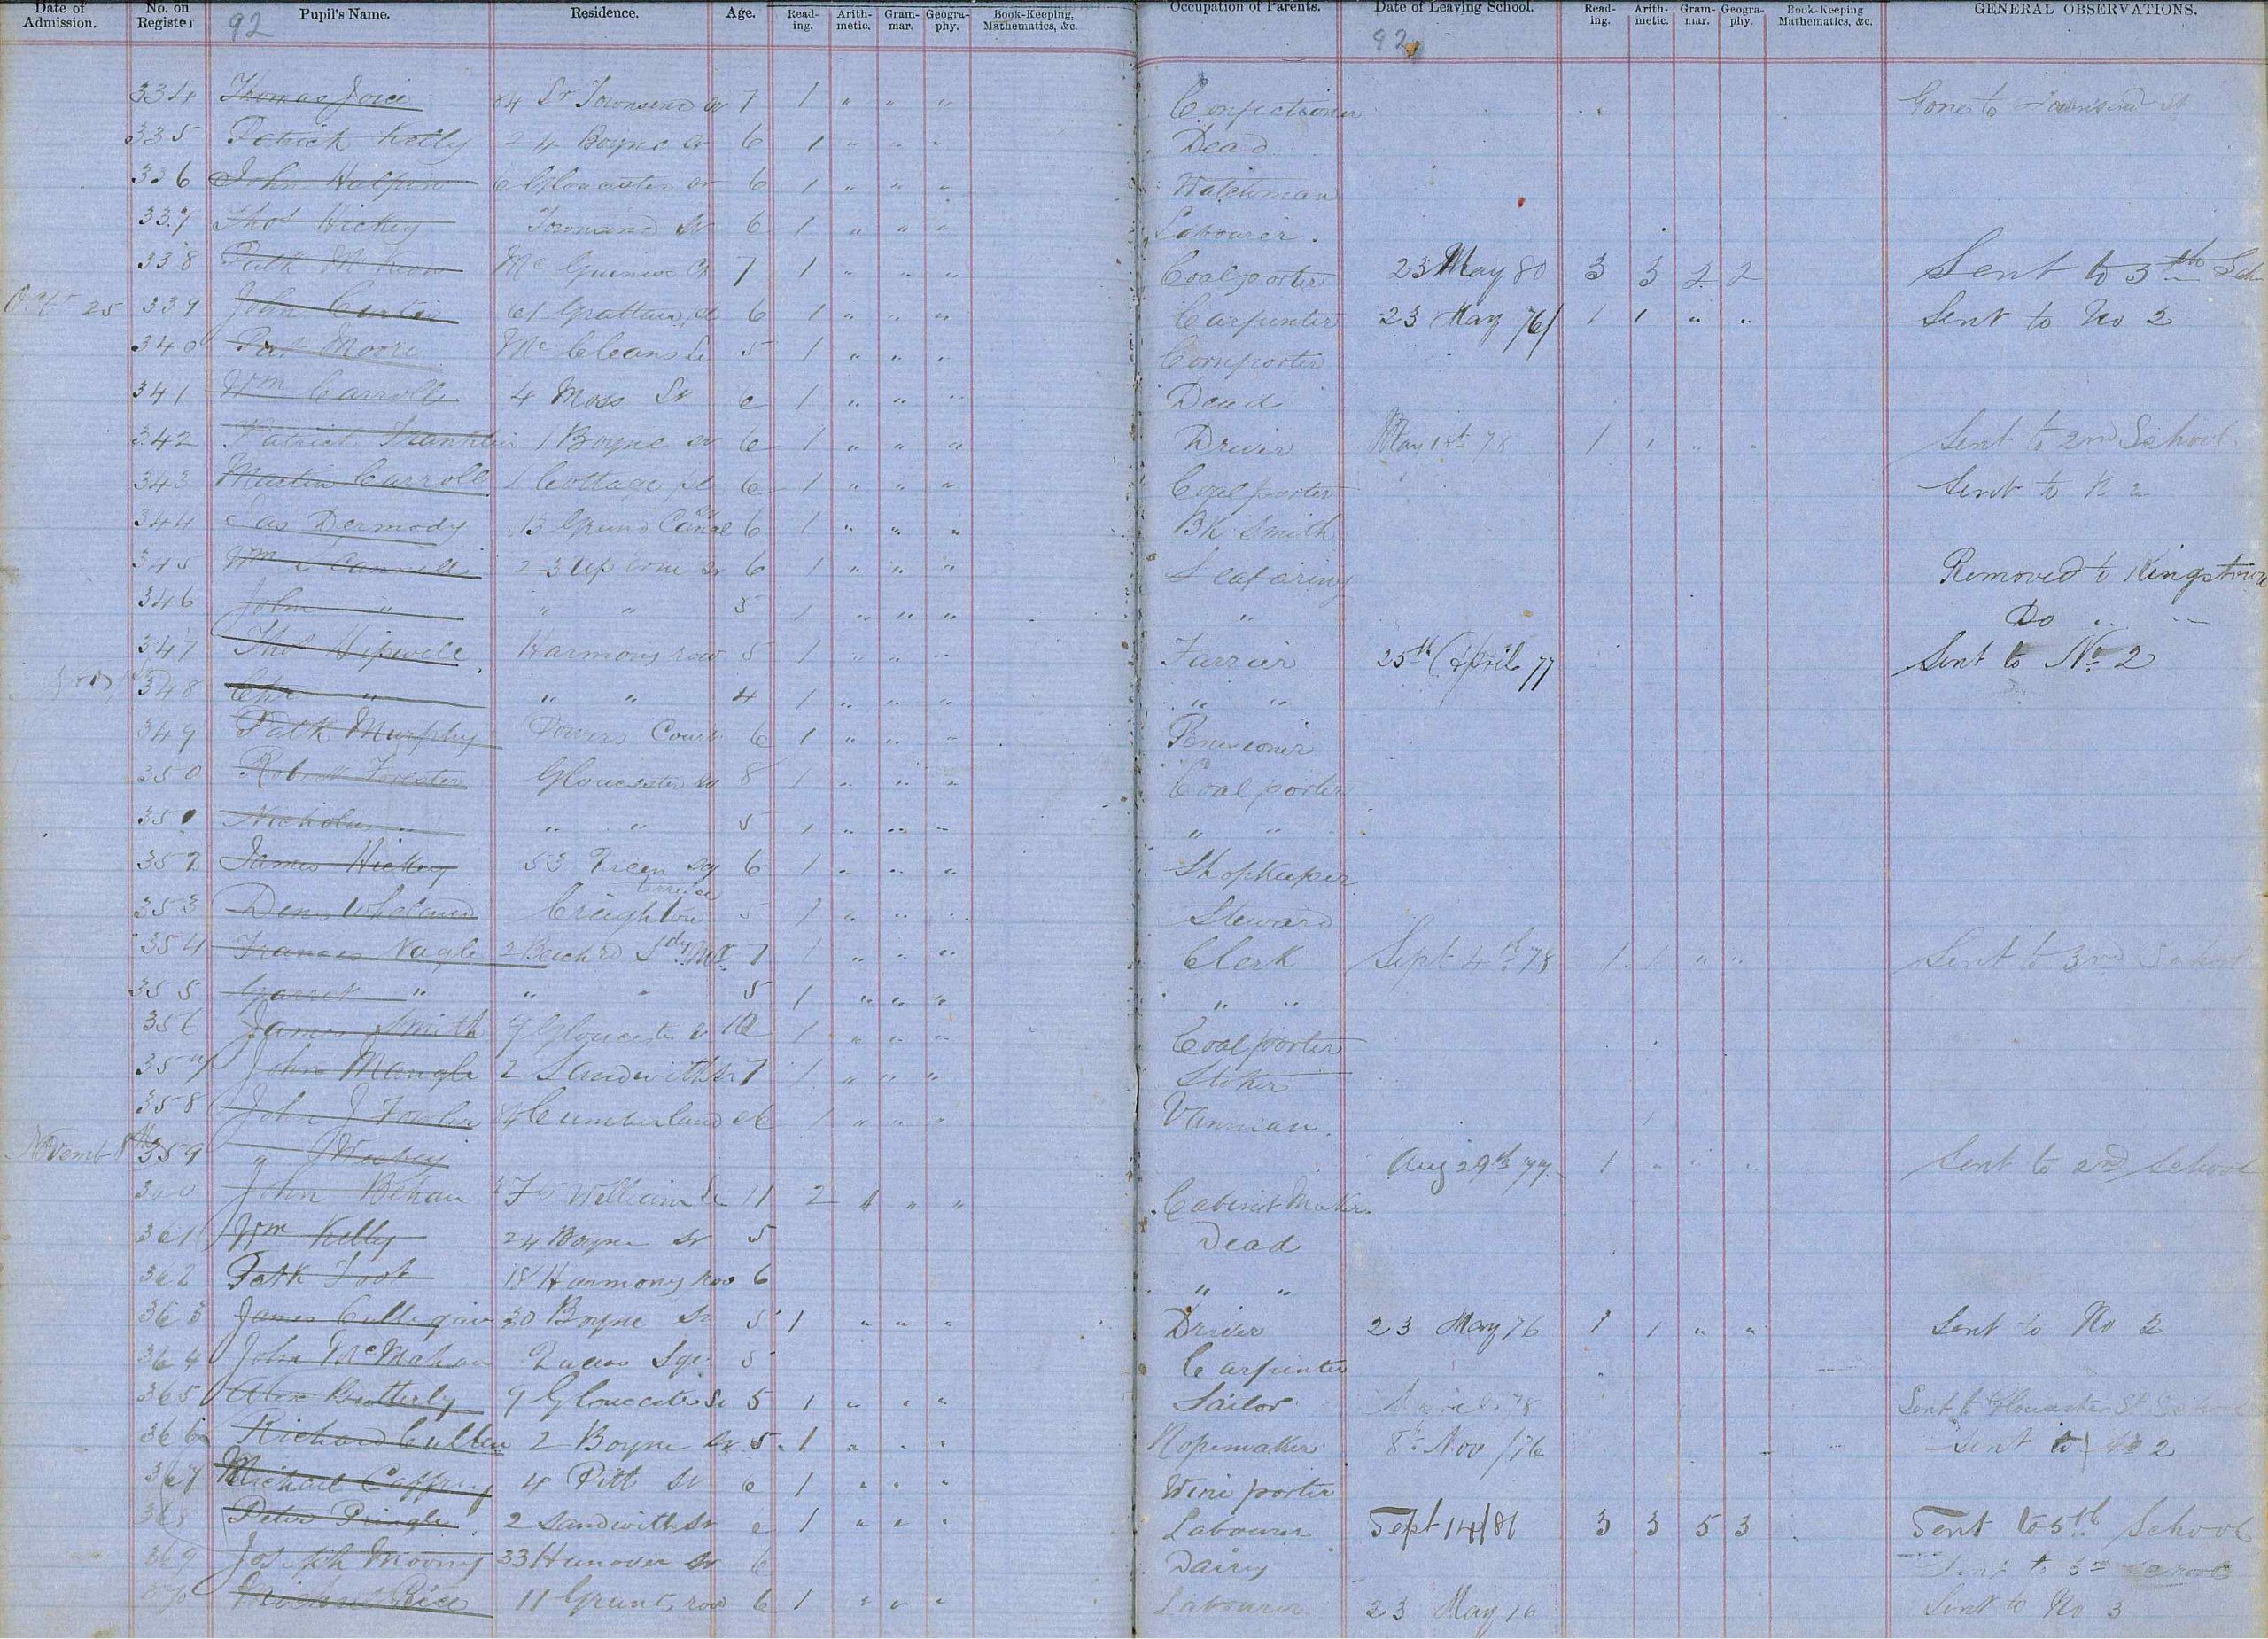 Date of Admission. No. on Register Pupil's Name. Residence. Age. Read-ing. Arith-metic. Gram-mar. Geogra-phy. Book-Keeping, Mathematics, &c. Occupation of Parents. Date of Leaving School. Read-ing. Arith-metic. Gram-mar. Geogra-phy. Book-Keeping Mathematics, &c. GENERAL OBSERVATIONS.
92 92
334 Thomas Joice Townsend 7 1 " " " Confectioner Gone to Townsend St
335 Patrick Kelly 24 Boyne St 6 1 " " " Dead
336 John Halpin 6 Gloucester St 6 1 " " " Watchman
337 Thos Hickey Townsend St 6 1 " " " Labourer.
338 Patk McKeon Mc Guiness Ct 7 1 " " " Coalporter 23 May 80 3 3 2 2 Sent to 5th Sch
25 339 John Curtis 61 Grattan Ct 6 1 " " " Carpenter 23 May 76/ 1 1 " " Sent to No 2
340 Pat Moore Mc Cleans Le 5 1 " " " Cornporter
341 Wm Carroll 4 Moss St 6 1 " " " Dead
342 Patrick Franklin 1 Boyne St 6 1 " " " Driver May 1st 78 1 1 " " Sent to 2nd School
343 Martin Carroll 1 Cottage pl 6 1 " " " Coalporter Sent to N 2
344 Jas Dermody 13 Grand Canal 6 1 " " " Bk Smith
345 Wm 23 Up Erne St 6 1 " " " Seafaring Removed to Kingstown
346 John " " " 5 1 " " " " Do " "
347 Thos Hipwell Harmony row 5 1 " " " Farrier 25th April 77 Sent to No 2
348 Chr " " " 4 1 " " " " "
349 Patk Murphy Powers Court 6 1 " " " Pensioner
350 Robert Forester Gloucester St 8 1 " " " Coalporter
351 Nicholas " " " 5 1 " " " " "
352 James Hickey 53 Queen Sq 6 1 " " " Shopkeeper
353 Denis Wheland Creighton terrace 5 1 " " " Steward
354 Francis Nagle 7 1 " " " Clerk Sept 4th 78 1 1 " " Sent to 3rd School
355 Garret " " " 5 1 " " " " "
356 James Smith 9 Gloucester St 10 1 " " " Coalporter
357 John Mangle 2 Sandwith St 7 1 " " " Stoker
358 John J Fowler Cumberland St 6 1 " " " Vanman.
Novemb 8th 359 " Aug 29th 77 1 " " " Sent to 2nd School
360 John Behan William 11 2 " " " Cabinet Maker.
361 Wm Kelly 24 Boyne St 5 Dead
362 Patk Foot 18 Harmony row 6 " "
363 James Culligan 30 Boyne St 5 1 " " " Driver 23 May 76 1 1 " " Sent to No 2
364 John McMahon Queen Sqr 5 Carpenter
365 Alex Butterly 9 Gloucester St 5 1 " " " Sailor April 78 Sent to Gloucester St School
366 Richard Cullen 2 Boyne St 5 1 " " " Ropemaker 8th Nov /76 Sent to No 2
367 Michael Caffrey 4 Pitt St 6 1 " " " Wine porter
368 Peter Pringle 2 Sandwith St 6 1 " " " Labourer Sept 14/81 3 3 5 3 Sent to 5th School
369 Joseph Mooney 33 Hanover St 6 Dairy Sent to 3rd School
370 Michael Rice 11 Grants row 6 1 " " " Labourer 23 May 76 Sent to No 3